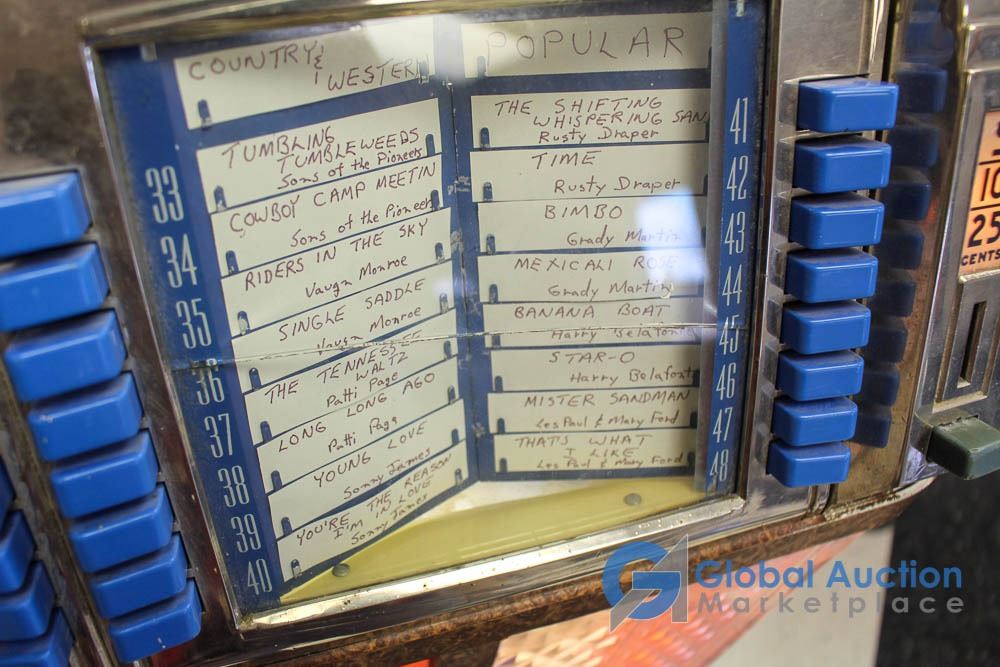 COUNTRY &
WESTERN
33
TUMBLING
TUMBLEWEEDS
Sons of the Pioneers
34
COWBOY CAMP MEETIN
Sons of the Pioneers
35
RIDERS IN THE SKY
Vaugn Monroe
36
SINGLE SADDLE
Vaugn Monroe
37
THE TENNESSEE
WALTZ
Patti Page
38
LONG LONG AGO
Patti Page
39
YOUNG LOVE
Sonny James
40
YOU'RE THE REASON
I'M IN LOVE
Sonny James
POPULAR
THE SHIFTING
WHISPERING SAN
Rusty Draper
41
TIME
Rusty Draper
42
BIMBO
Grady Martin
43
MEXICALI ROSE
Grady Martin
44
BANANA BOAT
Harry Belafonte
45
STAR-O
Harry Belafont
46
MISTER SANDMAN
Les Paul & Mary Ford
47
THATS WHAT
I LIKE
Les Paul & Mary Ford
48
10
25
CENTS
Global Auction
Marketplace